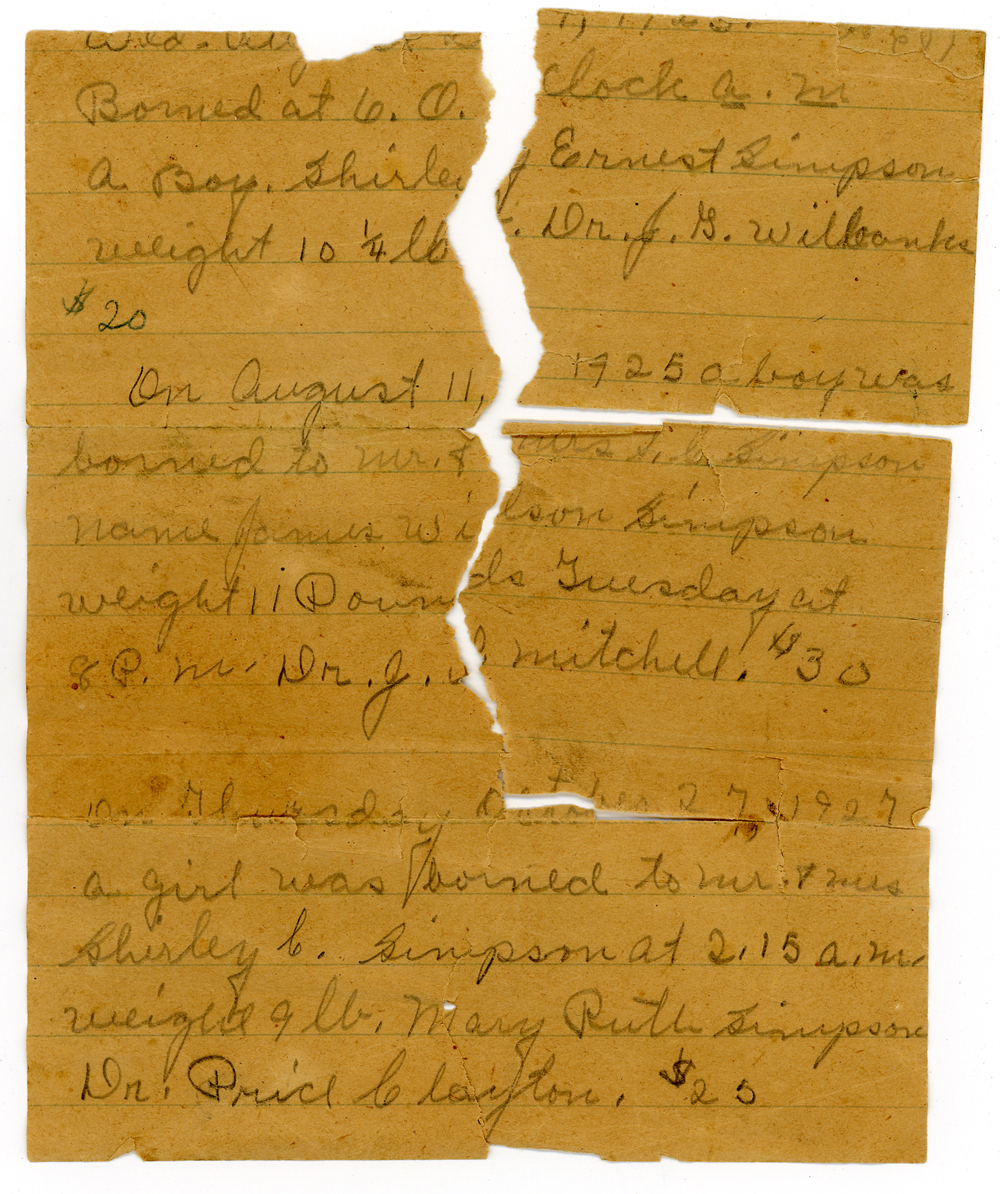 Borned at 6. O. Clock a. m
A Boy. Shirley Ernest Simpson
weight 10 ¼ lb. Dr. J. G. Wilbanks
$20
On August 11, 1925 a boy was
borned to mr. & mrs S. C. Simpson
name James Wilson Simpson
weight 11 Pounds Tuesday at
8 P. m. Dr. J. mitchell. $30
on Thursday October 27, 1927
a girl was borned to mr. & mrs
Shirley C. Simpson at 2.15 a.m.
weight 9 lb. Mary Ruth Simpson
Dr. Price Clayton. $25